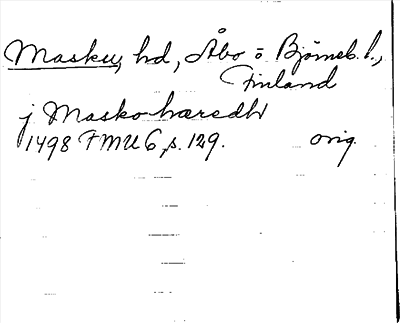 Masku, hd, Åbo o Björneb. l.,
Finland
j Masko hæredh
1498 FMU 6, s. 129. orig.